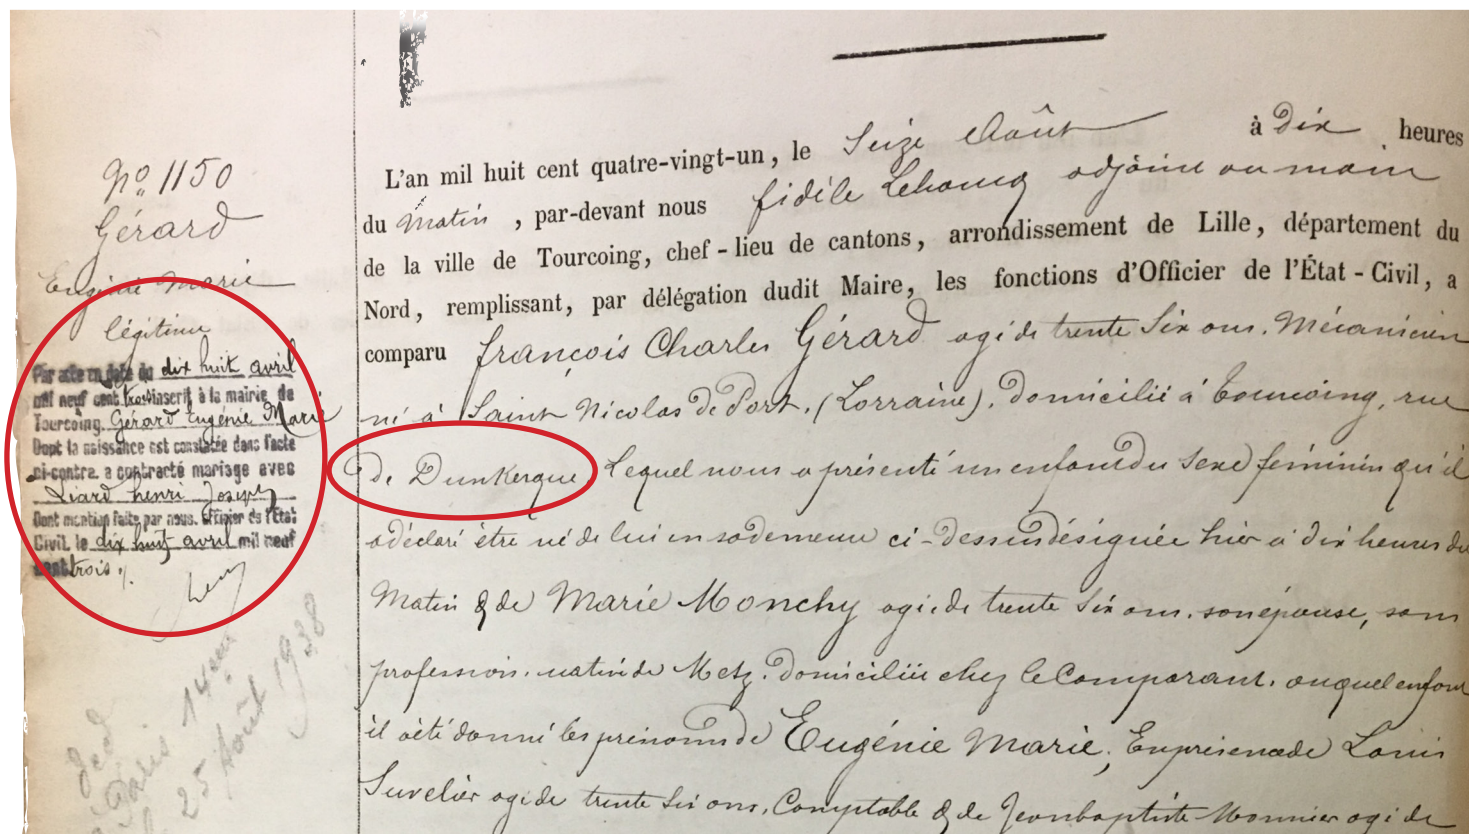 No 1150
Gérard
Eugénie Marie
légitime
Par acte en date du dix huit avril
mil neuf cent trois inscrit à la mairie de
Tourcoing, Gérard Eugénie Marie
Dont la naissance est constatée dans l'acte
ci-contre a contracté mariage avec
Liard henri Joseph
Dont mention faite par nous, Officier de l'État
Civil, le dix huit avril mil neuf
cent trois
Paris 14ème
25 Août 1938
L'an mil huit cent quatre-vingt-un, le Seize Août à Dix heures
du matin, par-devant nous fidèle Lehoucq adjoint au maire
de la ville de Tourcoing, chef-lieu de cantons, arrondissement de Lille, département du
Nord, remplissant, par délégation dudit Maire, les fonctions d'Officier de l'État-Civil, a
comparu françois Charles Gérard agé de trente Six ans, Mécanicien
né à Saint Nicolas De Port, (Lorraine), domicilié à Tourcoing, rue
de Dunkerque Lequel nous a présenté un enfant du Sexe féminin qu'il
a déclaré être né de lui en sa demeure ci-dessus désignée hier à dix heures du
Matin & de Marie Monchy agée de trente Six ans, son épouse, sans
profession, native de Metz, Domiciliée chez le Comparant, auquel enfant
il a été donné les prénoms de Eugénie Marie, En présence de Louis
Suvelier agé de trente Six ans, Comptable & de Jean baptiste Monnier agé de